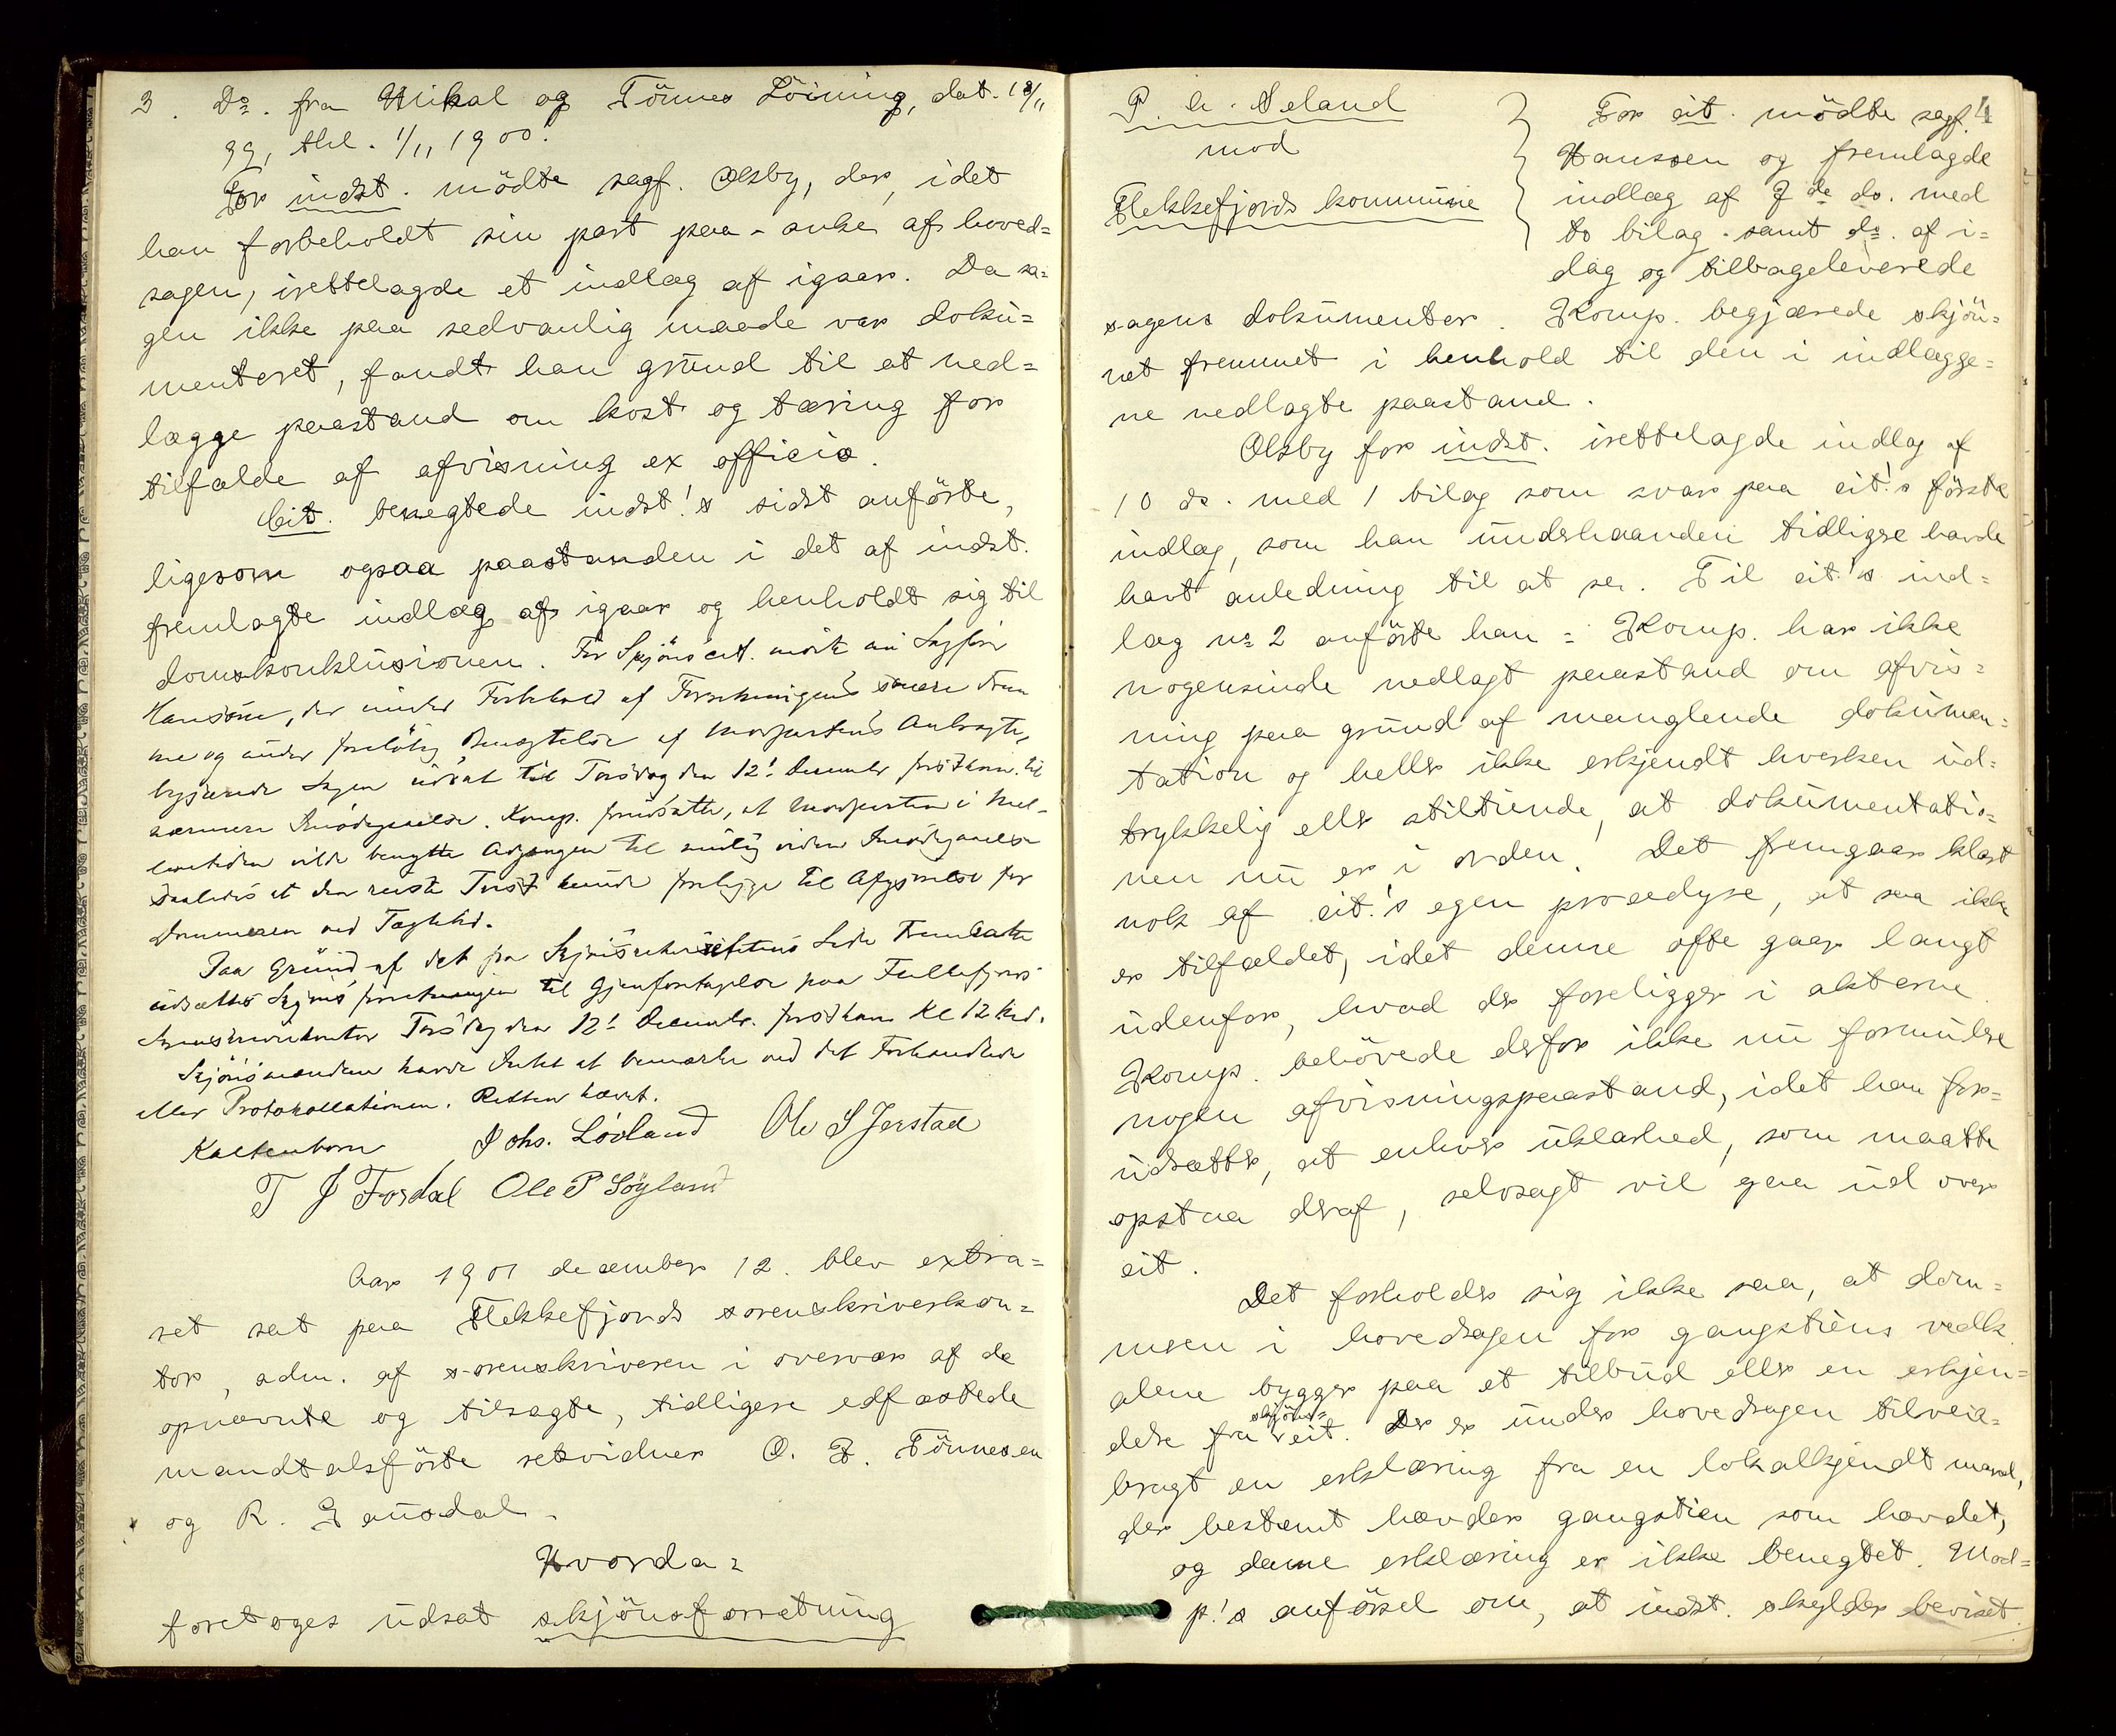 3. Do. fra Mikal og Tönnes Löining, dat. 18/11
99, thl. 1/11 1900.
For indst. mödte sagf. Olsby, der, idet
han forbeholdt sin part paa-anke af hoved=
sagen, irettelagde et indlæg af igaar. Da sa=
gen ikke paa sedvanlig maade var doku=
menteret, fandt han grund til at ned=
lægge paastand om kost og tæring for
tilfælde af afvisning ex officio.
Cit. benegtede indst!s sidst anförte,
ligesom ogsaa paastanden i det af indst.
fremlagte indlæg af igaar og henholdt sig til
domskonklusionen. For Skjöns cit. mödte
Hanssen, der under Forbehold af Forretningens
me og under foreløbig Benægtelse af Modpartens Anbragte,
begjærede Sagen udsat til Torsdag den 12! December førstkom. til
nærmere Imødegaaelse. Komp. forudsatte, at Modparten i Mel-
lemtiden vilde benytte Adgangen til mulig videre Imødegaaelse
saaledes at den næste Termin kunde foreligge til Afgjørelse for
Dommeren ved
Paa Grund af det fra Skjønsrekvisitens Side Fremsatte
udsættes Skjønsforretningen til Gjenforetagelse paa Flekkefjords
Sorenskriverkontor Torsdag den 12! Decembr. førstkom Kl 12 Md.
Skjønsmændene havde Intet at bemærke ved det Forhandlede
eller Protokollationen. Retten hævet.
Kaltenborn Johs. Lövland Ole S Jerstad
T J Fosdal Ole P Söyland
Aar 1901 december 12. blev extra=
ret sat paa Flekkefjords sorenskriverkon=
tor, adm. af sorenskriveren i overvær af de
opnævnte og tilsagte, tidligere edfæstede
mandtalsförte retsvidner O. F. Tönnesen
og R. Gausdal.
Hvorda=
foretoges udsat skjönsforretning
4
P. A. Seland
mod
Flekkefjords kommune
For cit. mödte sagf.
Hanssen og fremlagde
indlæg af 7 de ds. med
to bilag samt do. af i=
dag og tilbageleverede
sagens dokumenter. Komp. begjærede skjön=
net fremmet i henhold til den i indlægge=
ne nedlagte paastand.
Olsby for indst. irettelagde indlæg af
10 ds. med 1 bilag som svar paa cit!s förste
indlæg, som han underhaanden tidligere havde
havt anledning til at se. Til cit!s ind=
læg no 2 anförte han: Komp. har ikke
nogensinde nedlagt paastand om afvis=
ning paa grund af manglende dokumen=
tation og heller ikke erkjendt hverken ud=
trykkelig eller stiltiende, at dokumentatio=
nen nu er i orden. Det fremgaar klart
nok af cit!s egen procedyre, at saa ikke
er tilfældet, idet denne ofte gaar langt
udenfor, hvad der foreligger i akterne.
Komp. behövede derfor ikke nu formulere
nogen afvisningspaastand, idet han for=
udsætter, at enhver uklarhed, som maatte
opstaa deraf, selvsagt vil gaa ud over
cit.
Det forholder sig ikke saa, at dom=
men i hovedsagen for gangstiens vedk.
alene bygger paa et tilbud eller en erkjen=
delse fra skjöns=cit. Der er under hovedsagen tilveie=
bragt en erklæring fra en lokalkjendt mand,
der bestemt hævder gangstien som hævdet,
og denne erklæring er ikke benegtet. Mod=
p!s anförsel om, at indst. skylder beviset